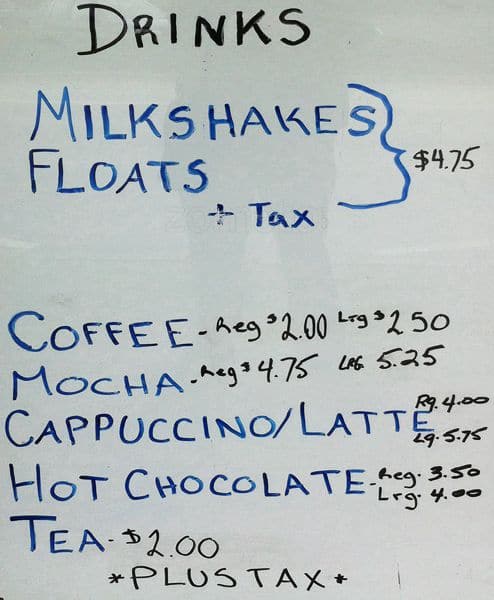 DRINKS
MILKSHAKES
FLOATS
$4.75
+ Tax
COFFEE - Reg $2.00 Lrg $2 50
MOCHA - Reg $4.75 LRG. 5.25
CAPPUCCINO/LATTE Rg. 4.00
Lg. 5.75
HOT CHOCOLATE - Reg. 3.50
Lrg. 4.00
TEA - $2.00
*PLUS TAX*